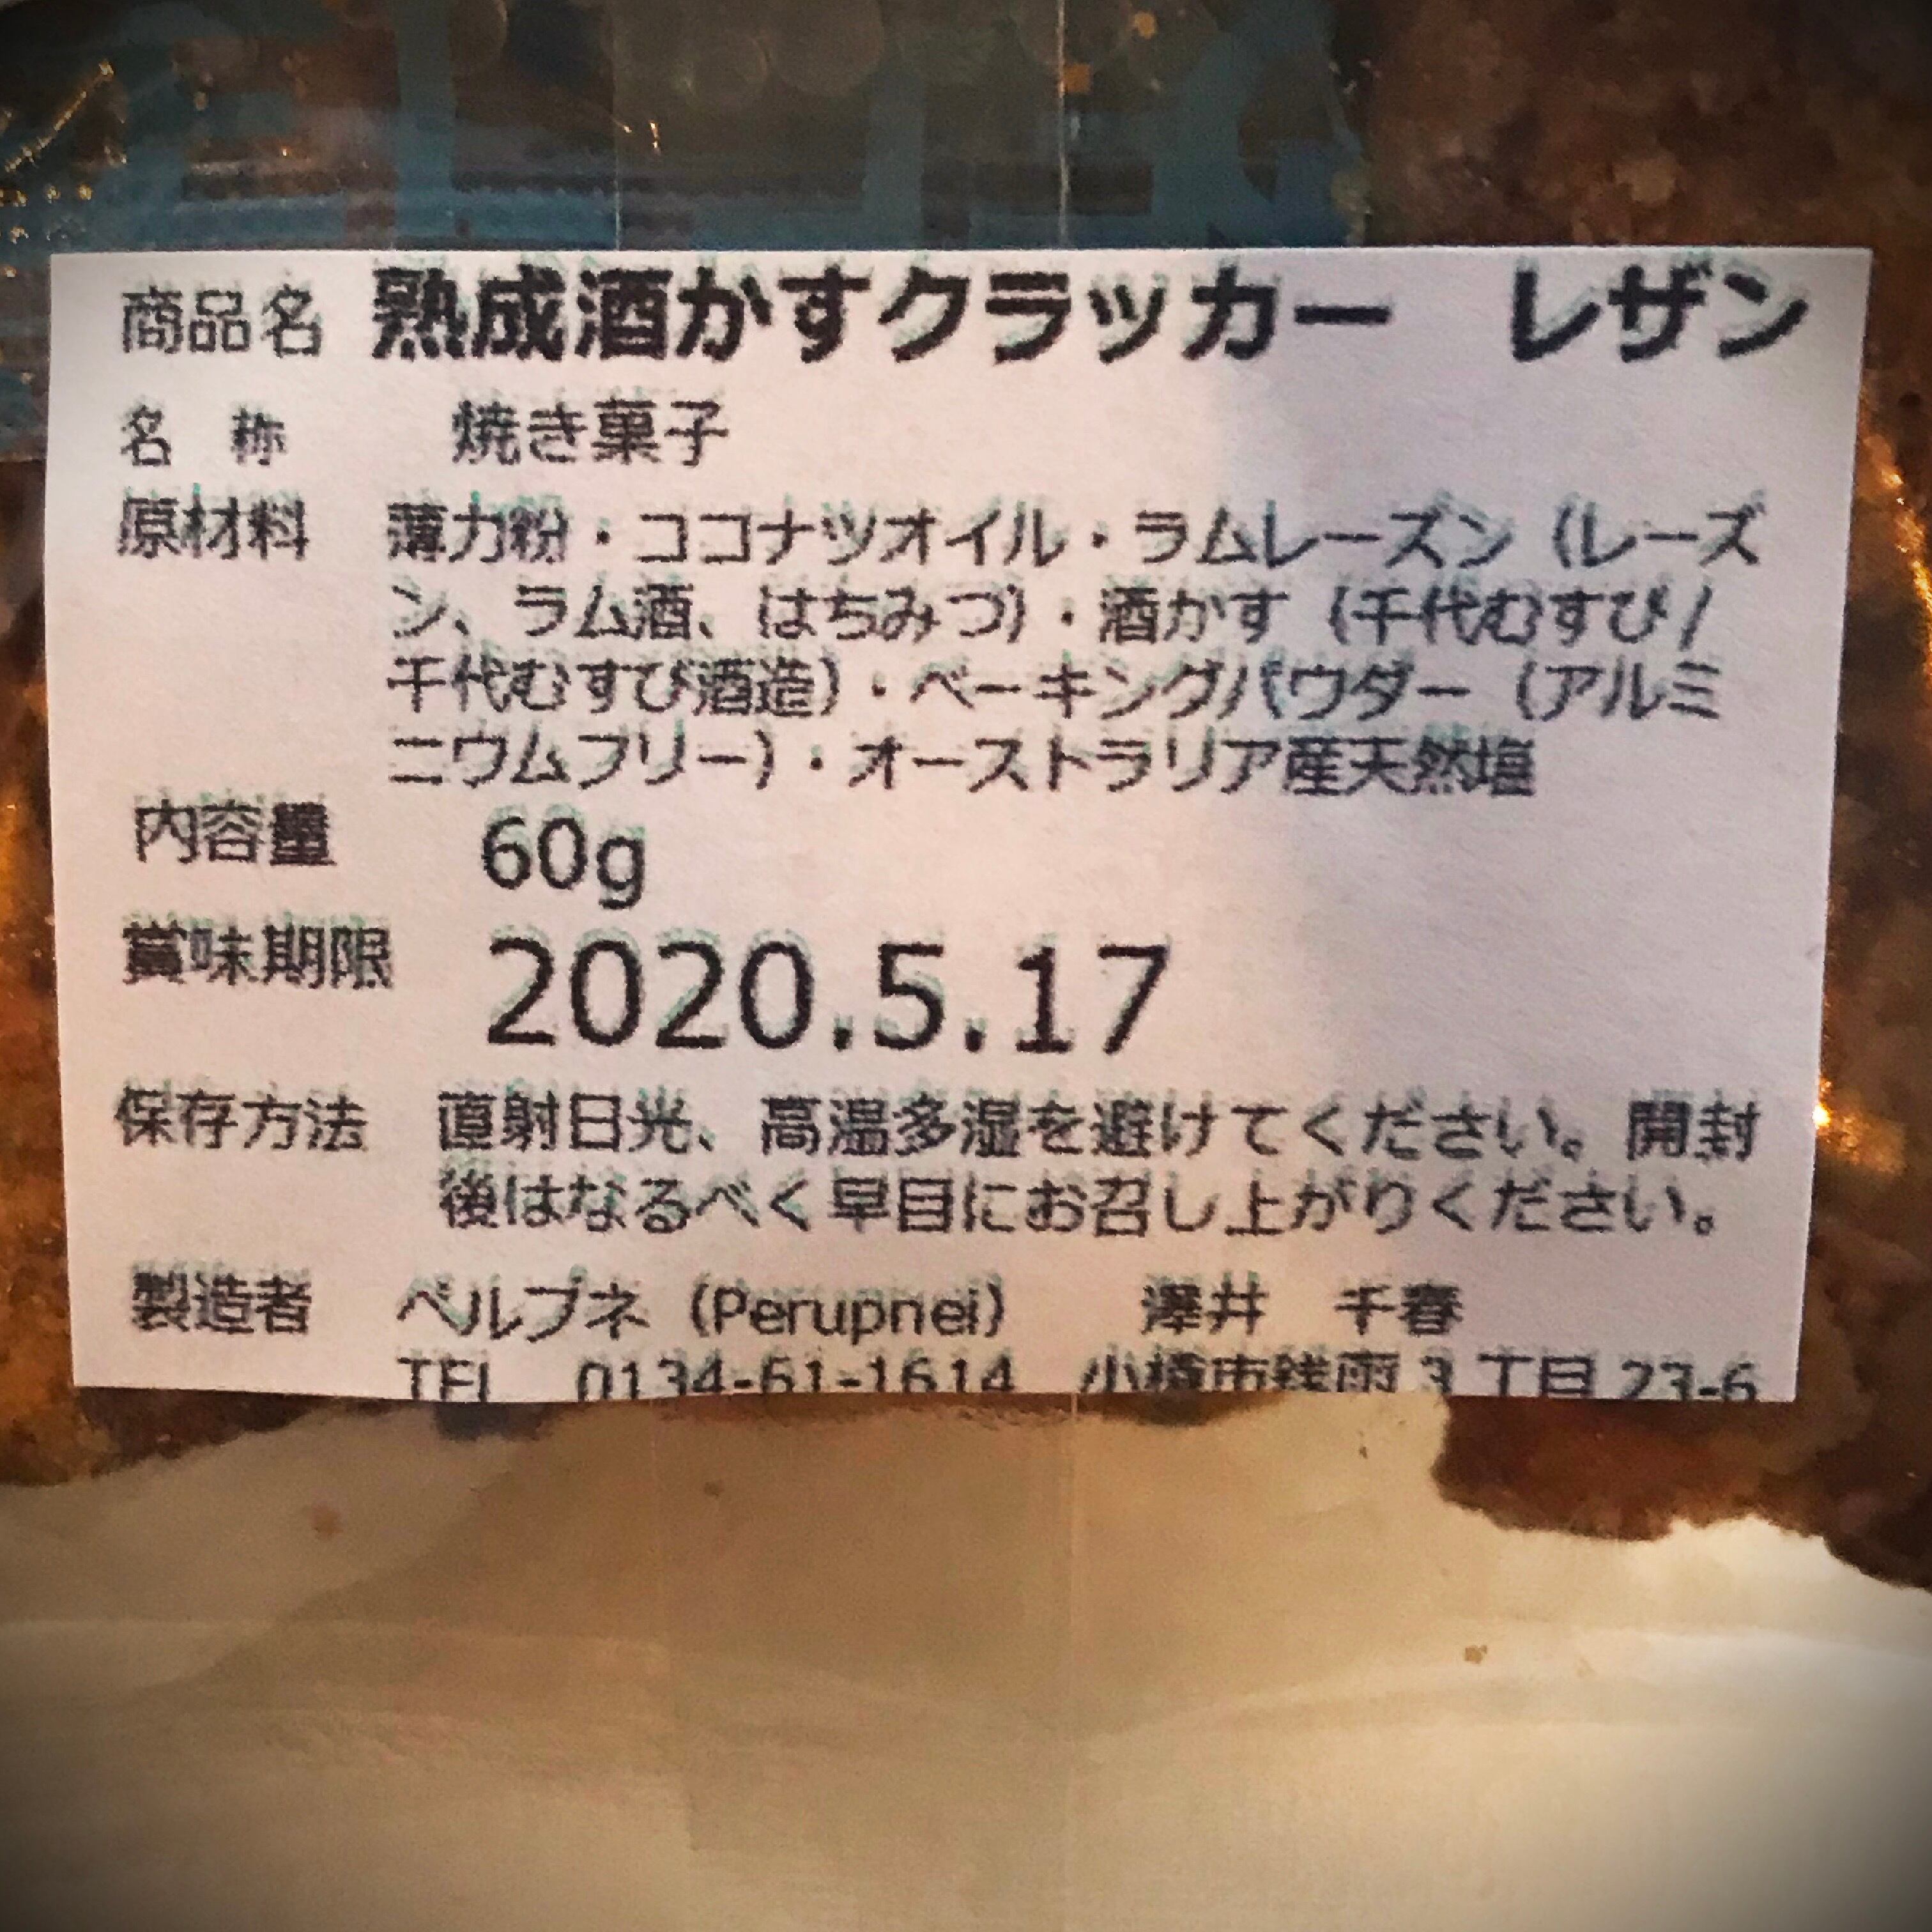 商品名 熟成酒かすクラッカー　レザン
名　称 焼き菓子
原材料 薄力粉・ココナツオイル・ラムレーズン（レーズ
ン、ラム酒、はちみつ）・酒かす（千代むすび/
千代むすび酒造）・ベーキングパウダー（アルミ
ニウムフリー）・オーストラリア産天然塩
内容量 60g
賞味期限 2020.5.17
保存方法 直射日光、高温多湿を避けてください。開封
後はなるべく早目にお召し上がりください。
製造者 ペルプネ（Perupnei）　澤井　千春
TEL　0134-61-1614　小樽市銭函3丁目23-6